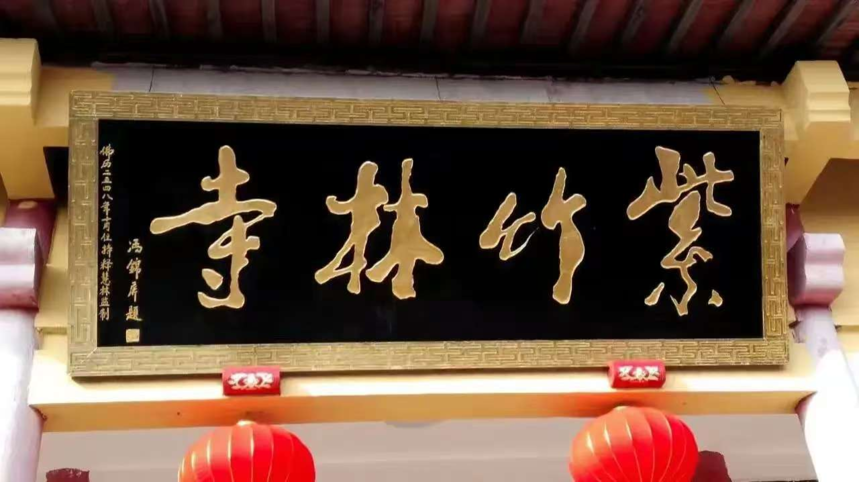 紫竹林寺
冯锦屏题
佛历二五四八年十月住持释慧林监制